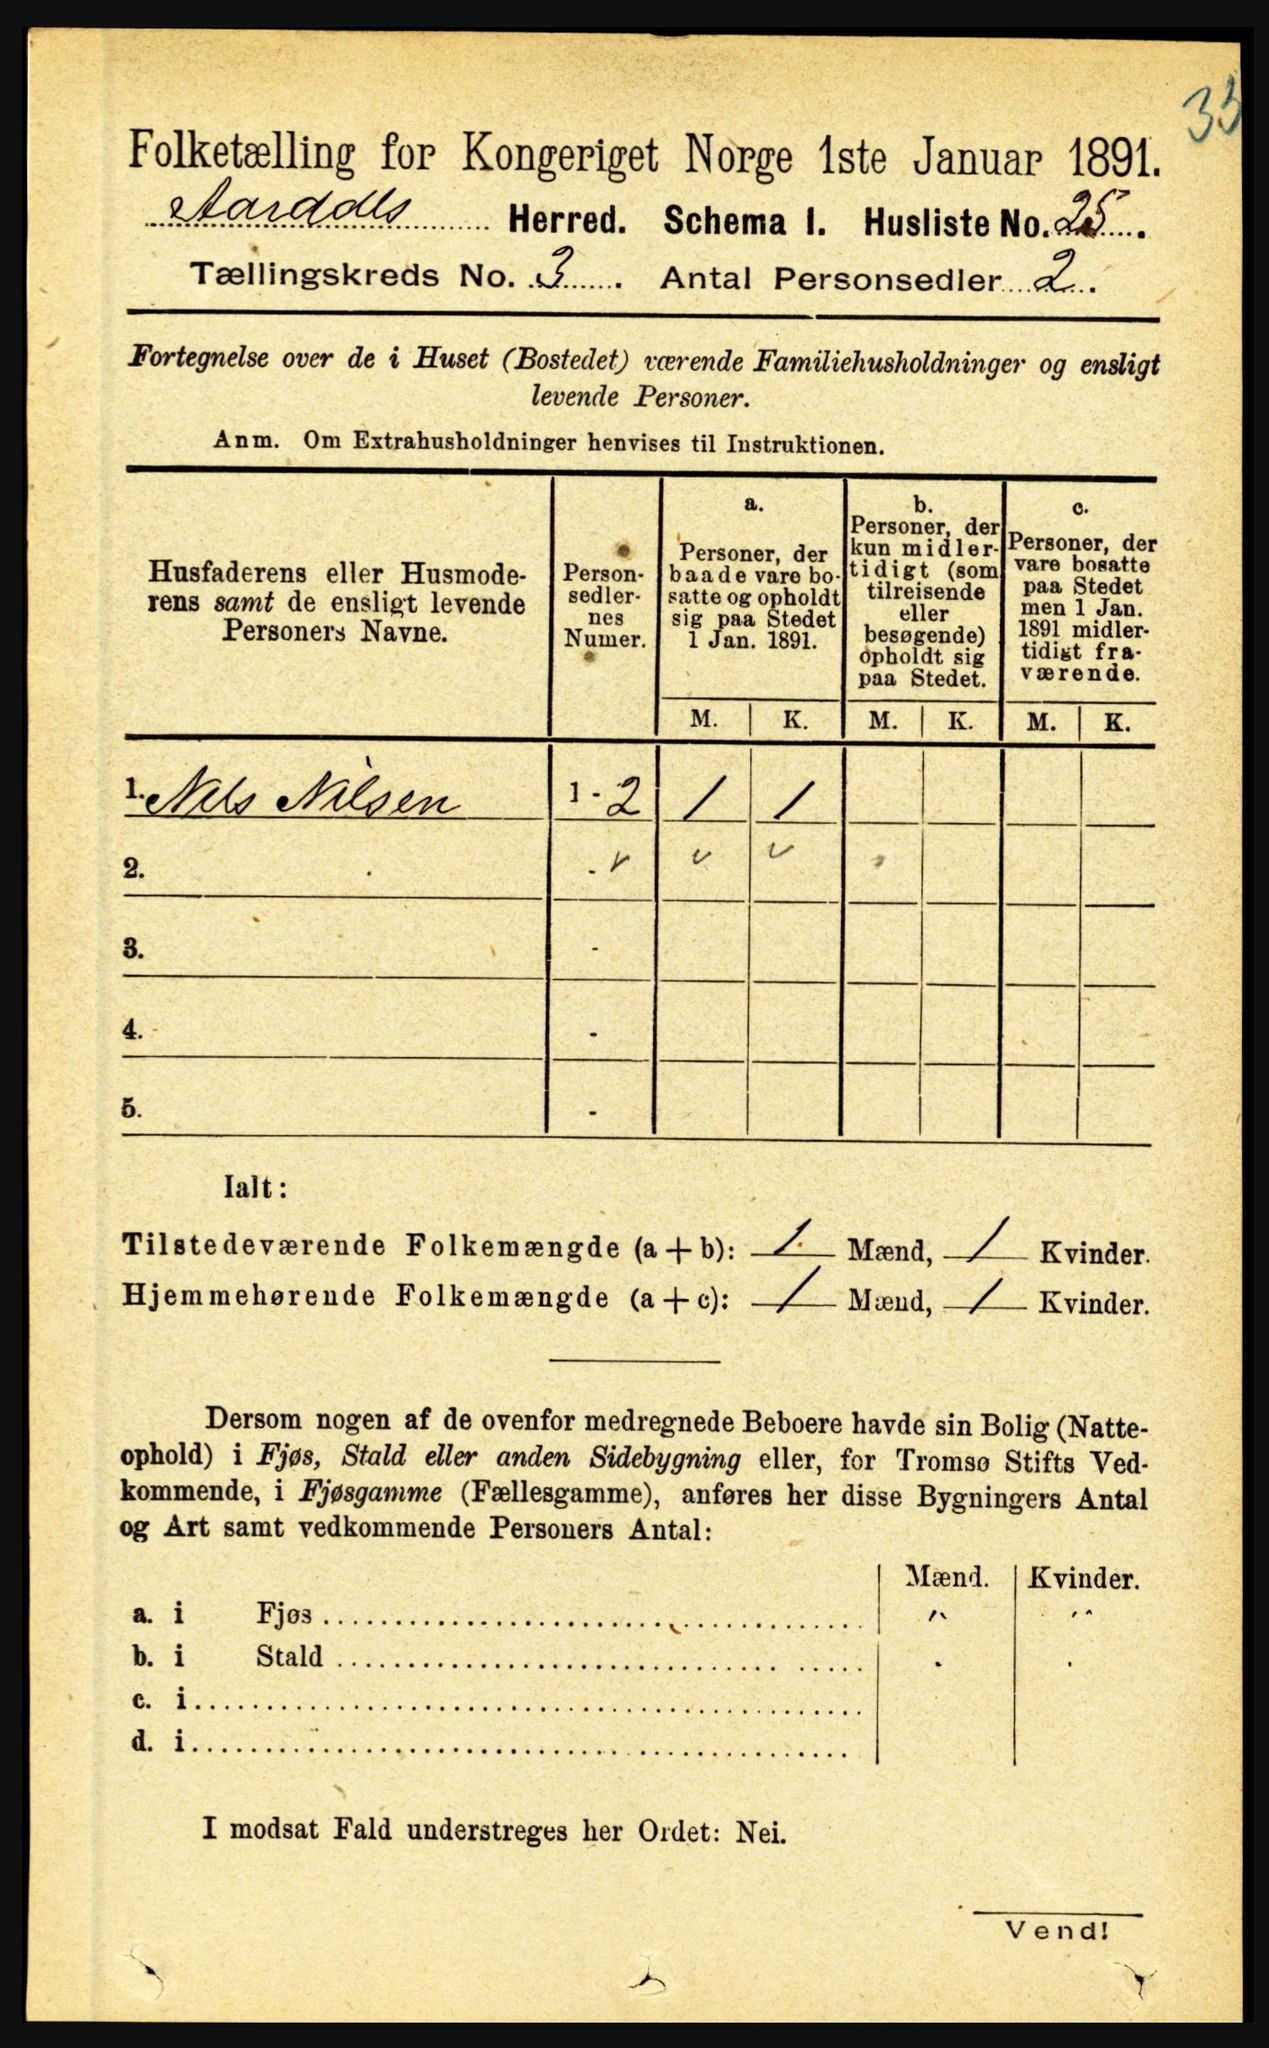 33
Folketælling for Kongeriget Norge 1ste Januar 1891.
Aardals Herred. Schema I. Husliste No. 25.
Tællingskreds No. 3. Antal Personsedler 2.
Fortegnelse over de i Huset (Bostedet) værende Familiehusholdninger og ensligt
levende Personer.
Anm. Om Extrahusholdninger henvises til Instruktionen.
Husfaderens eller Husmode-
rens samt de ensligt levende
Personers Navne.
Person-
sedler-
nes
Numer.
a.
Personer, der
baade vare bo-
satte og opholdt
sig paa Stedet
1 Jan. 1891.
b.
Personer, der
kun midler-
tidigt (som
tilreisende
eller
besøgende)
opholdt sig
paa Stedet.
c.
Personer, der
vare bosatte
paa Stedet
men 1 Jan.
1891 midler-
tidigt fra-
værende.
M. K. M. K. M. K.
1. Nils Nilsen 1 - 2 1 1
2. - v v v
3. -
4. -
5. -
Ialt:
Tilstedeværende Folkemængde (a + b): 1 Mænd, 1 Kvinder.
Hjemmehørende Folkemængde (a + c): 1 Mænd, 1 Kvinder.
Dersom nogen af de ovenfor medregnede Beboere havde sin Bolig (Natte-
ophold) i Fjøs, Stald eller anden Sidebygning eller, for Tromsø Stifts Ved-
kommende, i Fjøsgamme (Fællesgamme), anføres her disse Bygningers Antal
og Art samt vedkommende Personers Antal:
Mænd. Kvinder.
a. i Fjøs " "
b. i Stald . .
c. i
d. i
I modsat Fald understreges her Ordet: Nei.
Vend!